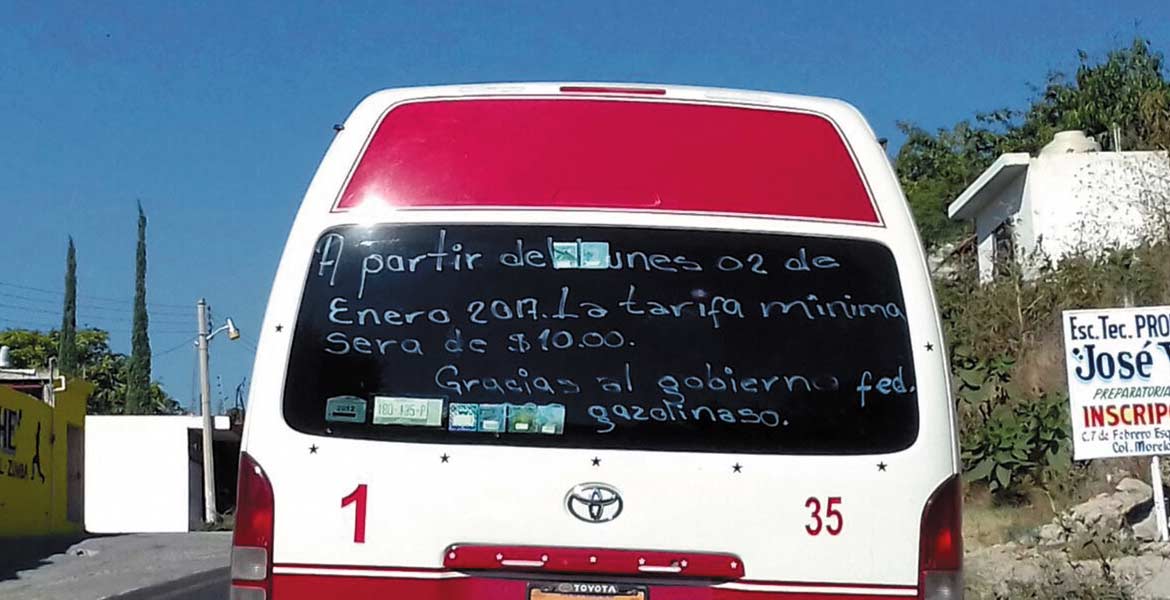 A partir del lunes 02 de
Enero 2017. La tarifa minima
sera de $10.00.
Gracias al gobierno fed.
gazolinaso.
2012
180-135-P
1
35
TOYOTA
HE'
ZUMBA
Esc. Tec. PRO
"José
PREPARATORIA
INSCRIP
C. 7 de Febrero Esq
Col. Morelo